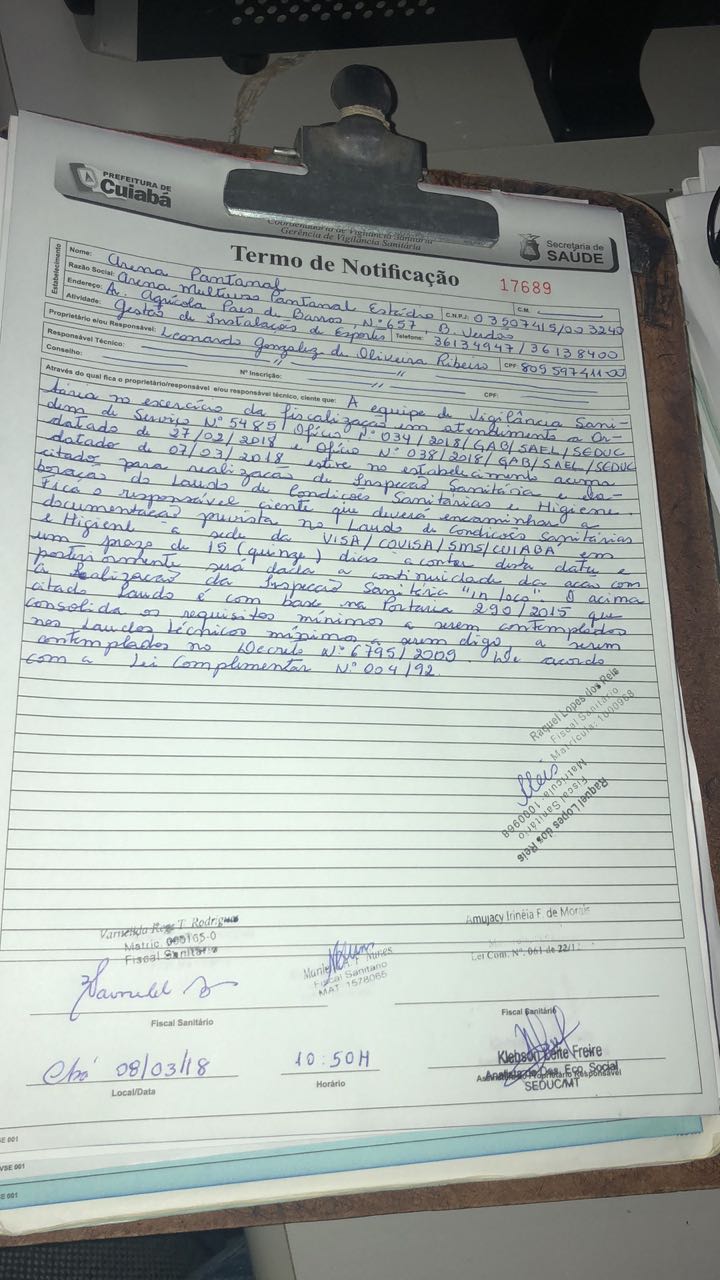 PREFEITURA DE
Cuiabá
Coordenadoria de Vigilância Sanitária
Gerência de Vigilância Sanitária
Secretaria de
SAÚDE
Termo de Notificação
17689
Estabelecimento
Nome: Arena Pantanal
C.M.
Razão Social: Arena Multiuso Pantanal Estádio C.N.P.J: 03507415/003240
Endereço: Av. Agrícola Paes de Barros, Nº 657, B. Verdão
Atividade: Gestão de Instalação de Esportes Telefone: 36134947/36138400
Proprietário e/ou Responsável: Leonardo Gonzalez de Oliveira Ribeiro CPF: 80959741100
Responsável Técnico:
Conselho: Nº Inscrição: CPF:
Através do qual fica o proprietário/responsável e/ou responsável técnico, ciente que: A equipe de Vigilância Sani-
tária no exercício da fiscalização em atendimento a Or-
dem de Serviço Nº 5485/ Ofício Nº 034/2018/GAB/SAEL/SEDUC
datado de 27/02/2018 e Ofício Nº 038/2018/GAB/SAEL/SEDUC
datado de 07/03/2018 esteve no estabelecimento acima
citado para realização de Inspeção Sanitária e ela-
boração do Laudo de Condições Sanitárias e Higiene.
Fica o responsável ciente que deverá encaminhar a
documentação prevista no Laudo de Condições Sanitárias
e Higiene a sede da VISA/COVISA/SMS/CUIABÁ em
um prazo de 15 (quinze) dias a contar desta data e
posteriormente será dada a continuidade da ação com
a Realização da Inspeção Sanitária "in loco". O acima
citado Laudo é com base na Portaria 290/2015 que
consolida os requisitos mínimos a serem contemplados
nos Laudos técnicos mínimos a serem digo a serem
contemplados no Decreto Nº 6795/2009. De acordo
com a Lei Complimentar Nº 004/92.
Raquel Lopes dos Reis
Fiscal Sanitário
Matrícula: 1000968
Reis
Raquel Lopes dos Reis
Fiscal Sanitário
Matrícula: 1000968
T. Rodrigues
Matric.
Fiscal Sanitário
Nunes
Fiscal Sanitário
MAT 1578065
Amujacy Irinéia F. de Morais
Lei Com. Nº. 061 de 22/12
Fiscal Sanitário
Fiscal Sanitário
Cbá 08/03/18
Local/Data
10:50H
Horário
Klebson Leite Freire
Analista de Des. Eco. Social
SEDUC/MT
Assinatura do Proprietário Responsável
SE 001
VSE 001
SE 001